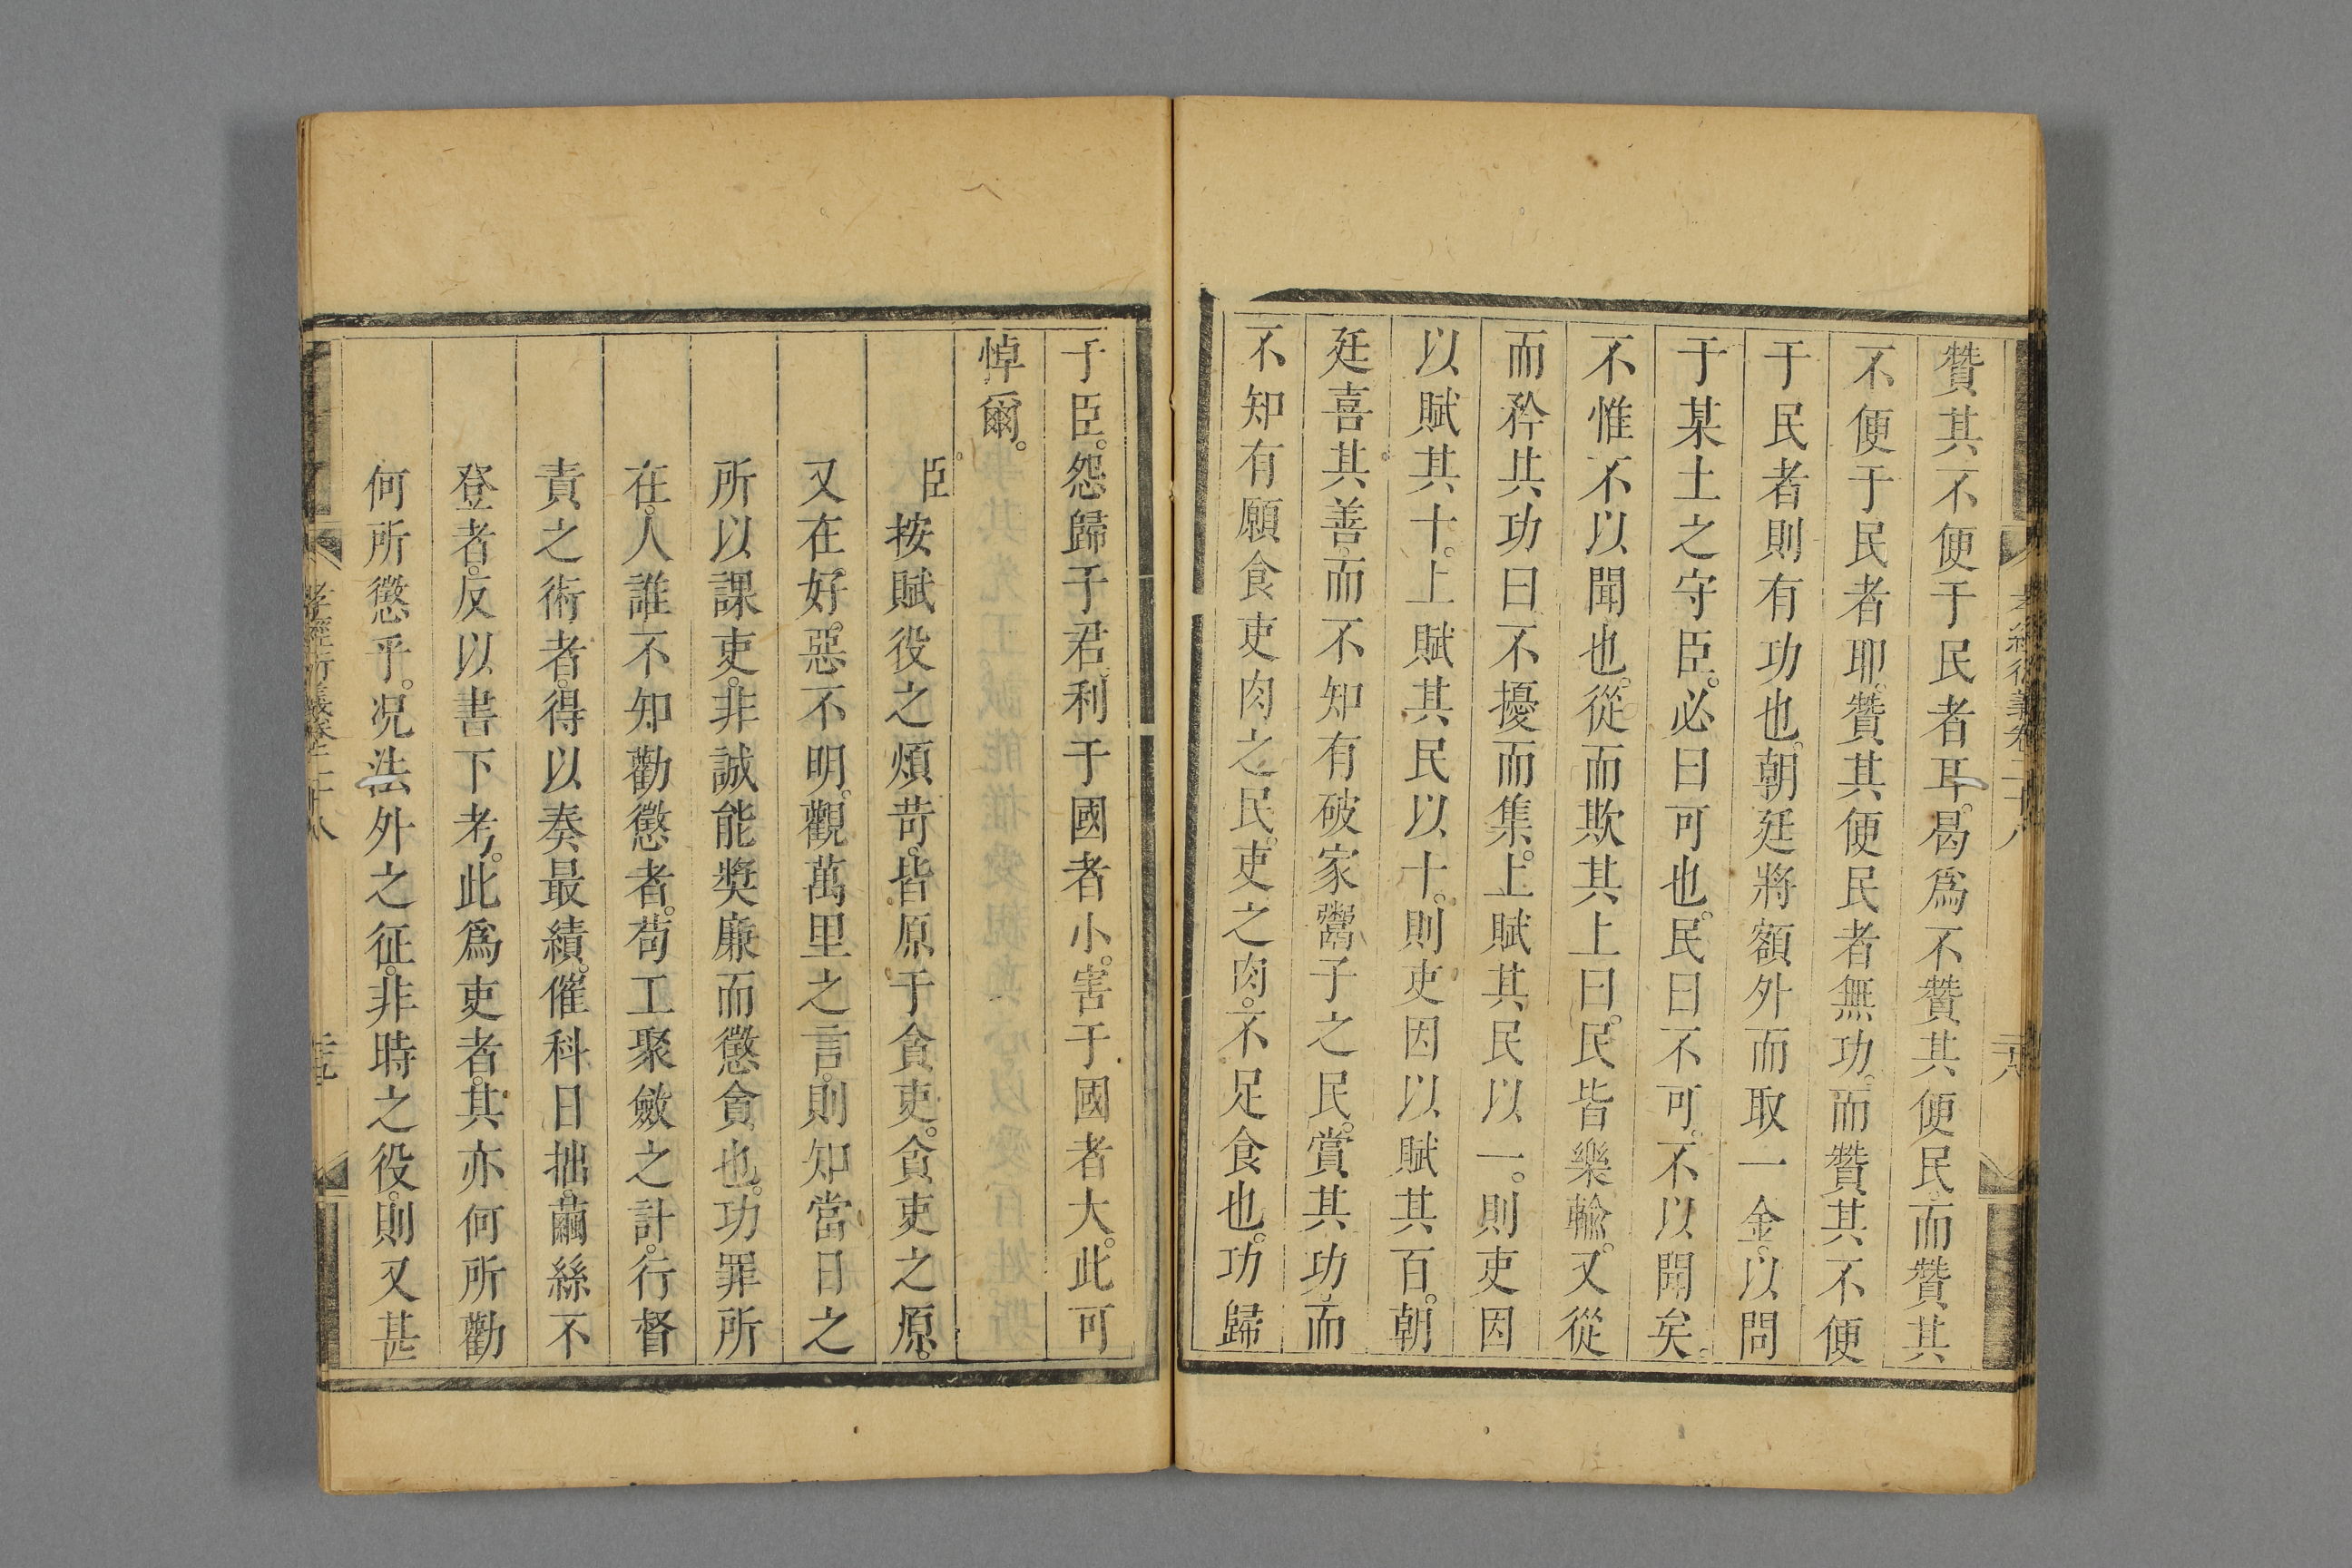 贊其不便于民者耳。曷爲不贊其便民。而贊其
不便于民者耶。贊其便民者無功。而贊其不便
于民者則有功也。朝廷將額外而取一金。以問
于某土之守臣。必曰可也。民曰不可。不以聞矣。
不惟不以聞也。從而欺其上曰。民皆樂輸。又從
而矜其功曰。不擾而集。上賦其民以一。則吏因
以賦其十。上賦其民以十。則吏因以賦其百。朝
廷喜其善。而不知有破家鬻子之民。賞其功。而
不知有願食吏肉之民。吏之肉。不足食也。功歸
于臣。怨歸于君。利于國者小。害于國者大。此可
悼爾。
臣按賦役之煩苛。皆原于貪吏。貪吏之原。
又在好惡不明。觀萬里之言。則知當日之
所以課吏。非誠能奬廉而懲貪也。功罪所
在。人誰不知勸懲者。苟工聚斂之計。行督
責之術者。得以奏最績。催科日拙。繭絲不
登者。反以書下考。此爲吏者。其亦何所勸
何所懲乎。况法外之征。非時之役。則又甚
孝經衍義卷二十八